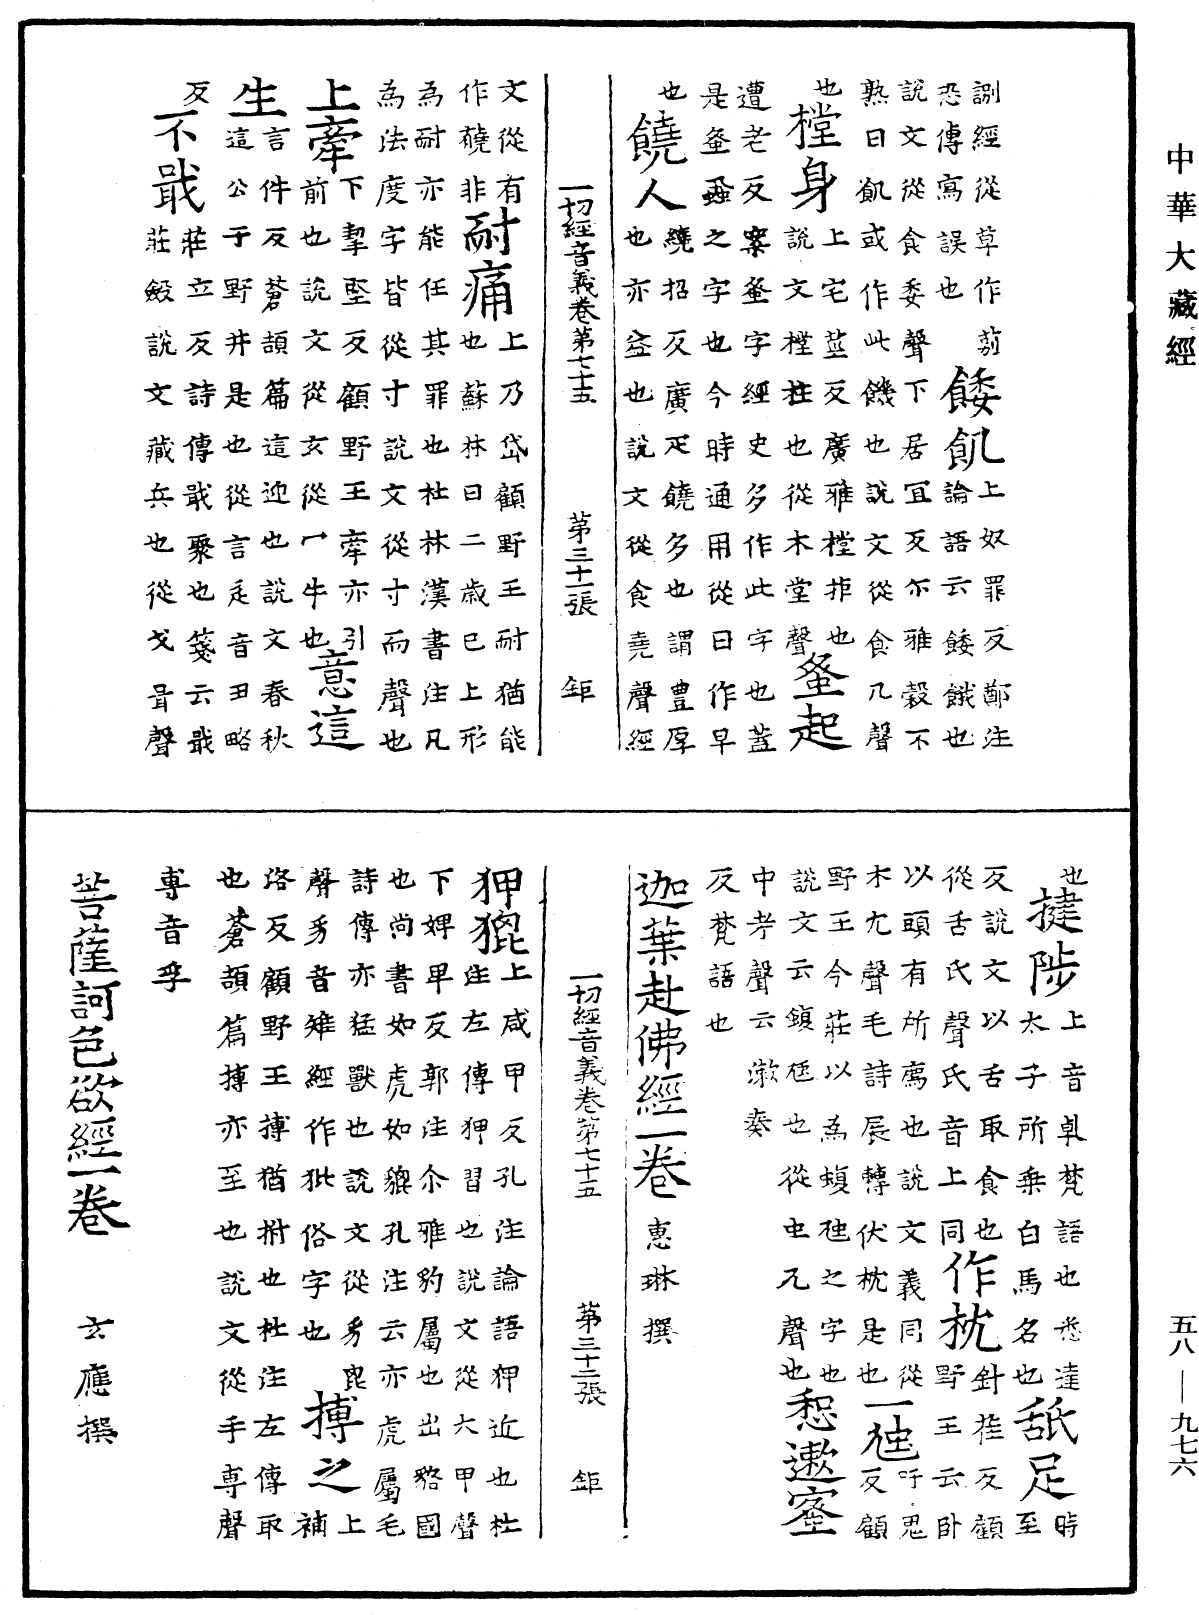 中華大藏經
五八—九七六
詶經從草作萷
恐傳寫誤也
餧飢
上奴罪反鄭注
論語云餧餓也
説文從食委聲下居冝反尒雅穀不
熟曰飢或作此饑也説文從食几聲
也
樘身
上宅莖反廣雅樘拒也
説文樘柱也從木堂聲
蚤起
遭老反案蚤字經史多作此字也蓋
是蚤蝨之字也今時通用從日作早
也
饒人
繞招反廣疋饒多也謂豊厚
也亦益也説文從食堯聲經
一切經音義卷第七十五 第三十一張 鉅
文從有
作 非
耐痛
上乃岱顧野王耐猶能
也蘇林曰二歲已上形
為耐亦能任其罪也杜林漢書注凡
為法度字皆從寸説文從寸而聲也
上牽
下挈堅反顧野王牽亦引
前也説文從玄從冖牛也
意這
生
言件反蒼頡篇這迎也説文春秋
這公子野井是也從言辵音丑略
反
不戢
莊立反詩傳戢聚也箋云戢
莊斂説文藏兵也從戈咠聲
也
揵陟
上音乹梵語也悉達
太子所乗白馬名也
舐足
時至
反説文以舌取食也
從舌氏聲氏音上同
作枕
針荏反顧
野王云卧
以頭有所薦也説文義同從
木冘聲毛詩展轉伏枕是也
一虺
吁鬼
反顧
野王今莊以為蝮虺之字也
説文云鎮虺也從虫兀聲也
惒遬蜜
中考聲云漱奏
反梵語也
迦葉赴佛經一卷 惠琳撰
狎㹸
上咸甲反孔注論語狎近也杜
注左傳狎習也説文從犬甲聲
下婢卑反郭注尒雅豹屬也出貉國
也尚書如虎如貔孔注云亦虎屬毛
詩傳亦猛獸也説文從豸毘
聲豸音雉經作㹸俗字也
搏之
上補
洛反顧野王搏猶拊也杜注左傳取
也蒼頡篇搏亦至也説文從手尃聲
尃音孚
一切經音義卷第七十五 第三十二張 鉅
菩薩訶色欲經一卷 玄應撰